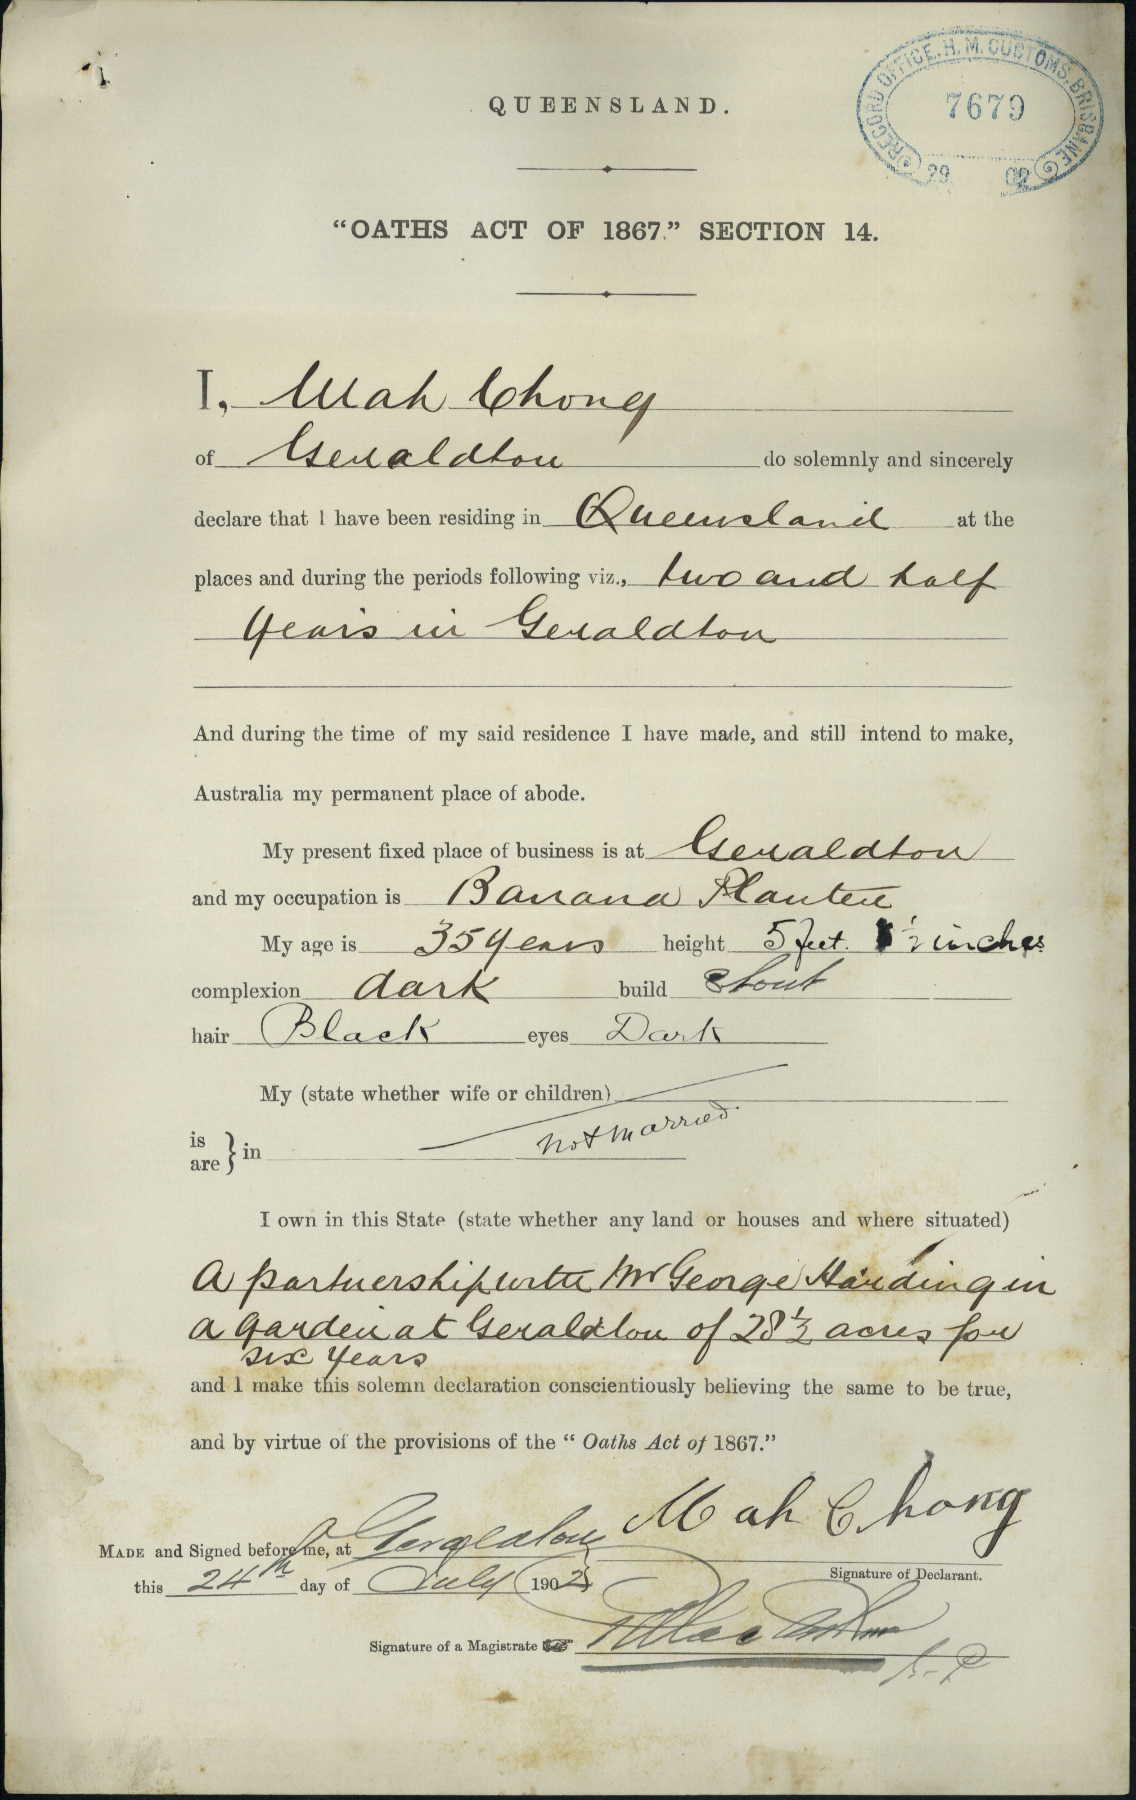 RECORD OFFICE, H. M. CUSTOMS, BRISBANE
7679
29 02
QUEENSLAND.
"OATHS ACT OF 1867." SECTION 14.
I, Mah Chong
of Geraldton do solemnly and sincerely
declare that I have been residing in Queensland at the
places and during the periods following viz., two and half
years in Geraldton
And during the time of my said residence I have made, and still intend to make,
Australia my permanent place of abode.
My present fixed place of business is at Geraldton
and my occupation is Banana Planter
My age is 35 years height 5 feet. ½ inches
complexion dark build stout
hair Black eyes Dark
My (state whether wife or children)
is
are } in not married.
I own in this State (state whether any land or houses and where situated)
A partnership with Mr George Harding in
a garden at Geraldton of 28½ acres for
six years
and I make this solemn declaration conscientiously believing the same to be true,
and by virtue of the provisions of the "Oaths Act of 1867."
Mah Chong
MADE and Signed before me, at Geraldton
Signature of Declarant.
this 24th day of July 1902
Signature of a Magistrate